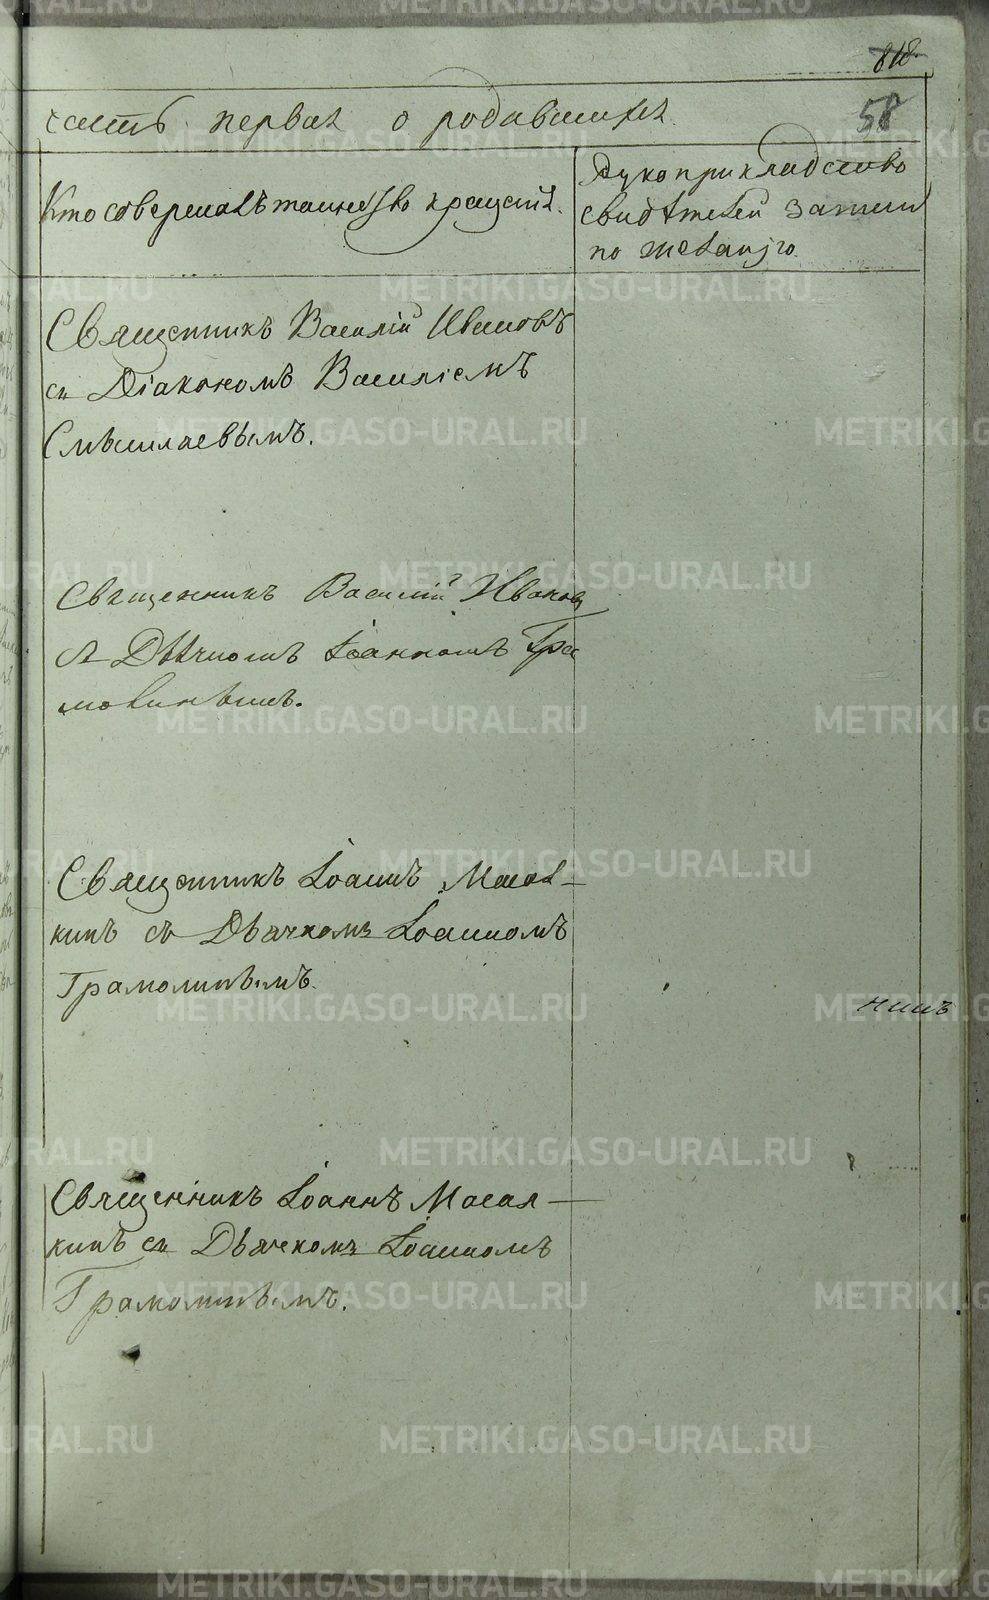 818
58
часть первая о родившихся
Кто совершалъ таинство крещенія.
Рукоприкладство
свидѣтелей записи
по желанію
Священникъ Василій Ивановъ
съ Діакономъ Василіемъ
Смышляевымъ.
Священникъ Василій Ивановъ
съ Дьячкомъ Іоанномъ Гра
молинымъ.
Священникъ Іоаннъ Масал-
кинъ съ Дьячкомъ Іоанномъ
Грамолинымъ.
Священникъ Іоаннъ Масал-
кинъ съ Дьячкомъ Іоанномъ
Грамолинымъ.
METRIKI.GASO-URAL.RU